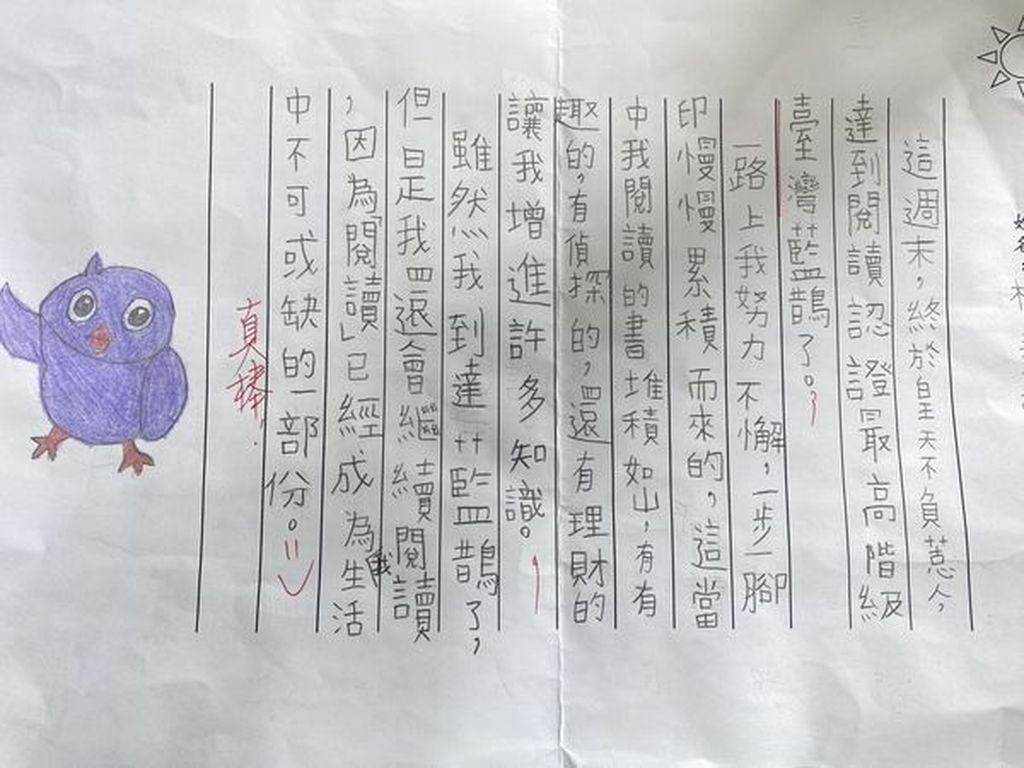 這週末，終於皇天不負苦心人，
達到閱讀認證最高階級
臺灣藍鵲了。
一路上我努力不懈，一步一腳
印慢慢累積而來的，這當
中我閱讀的書堆積如山，有有
趣的，有偵探的，還有理財的
讓我增進許多知識。
雖然我到達藍鵲了，
但是我還會繼續閱讀
，因為「閱讀」已經成為我生活
中不可或缺的一部份。
真棒！